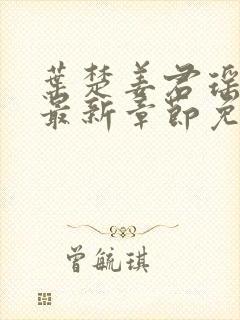 葉楚姜君瑶
最新章節免
曾毓琪